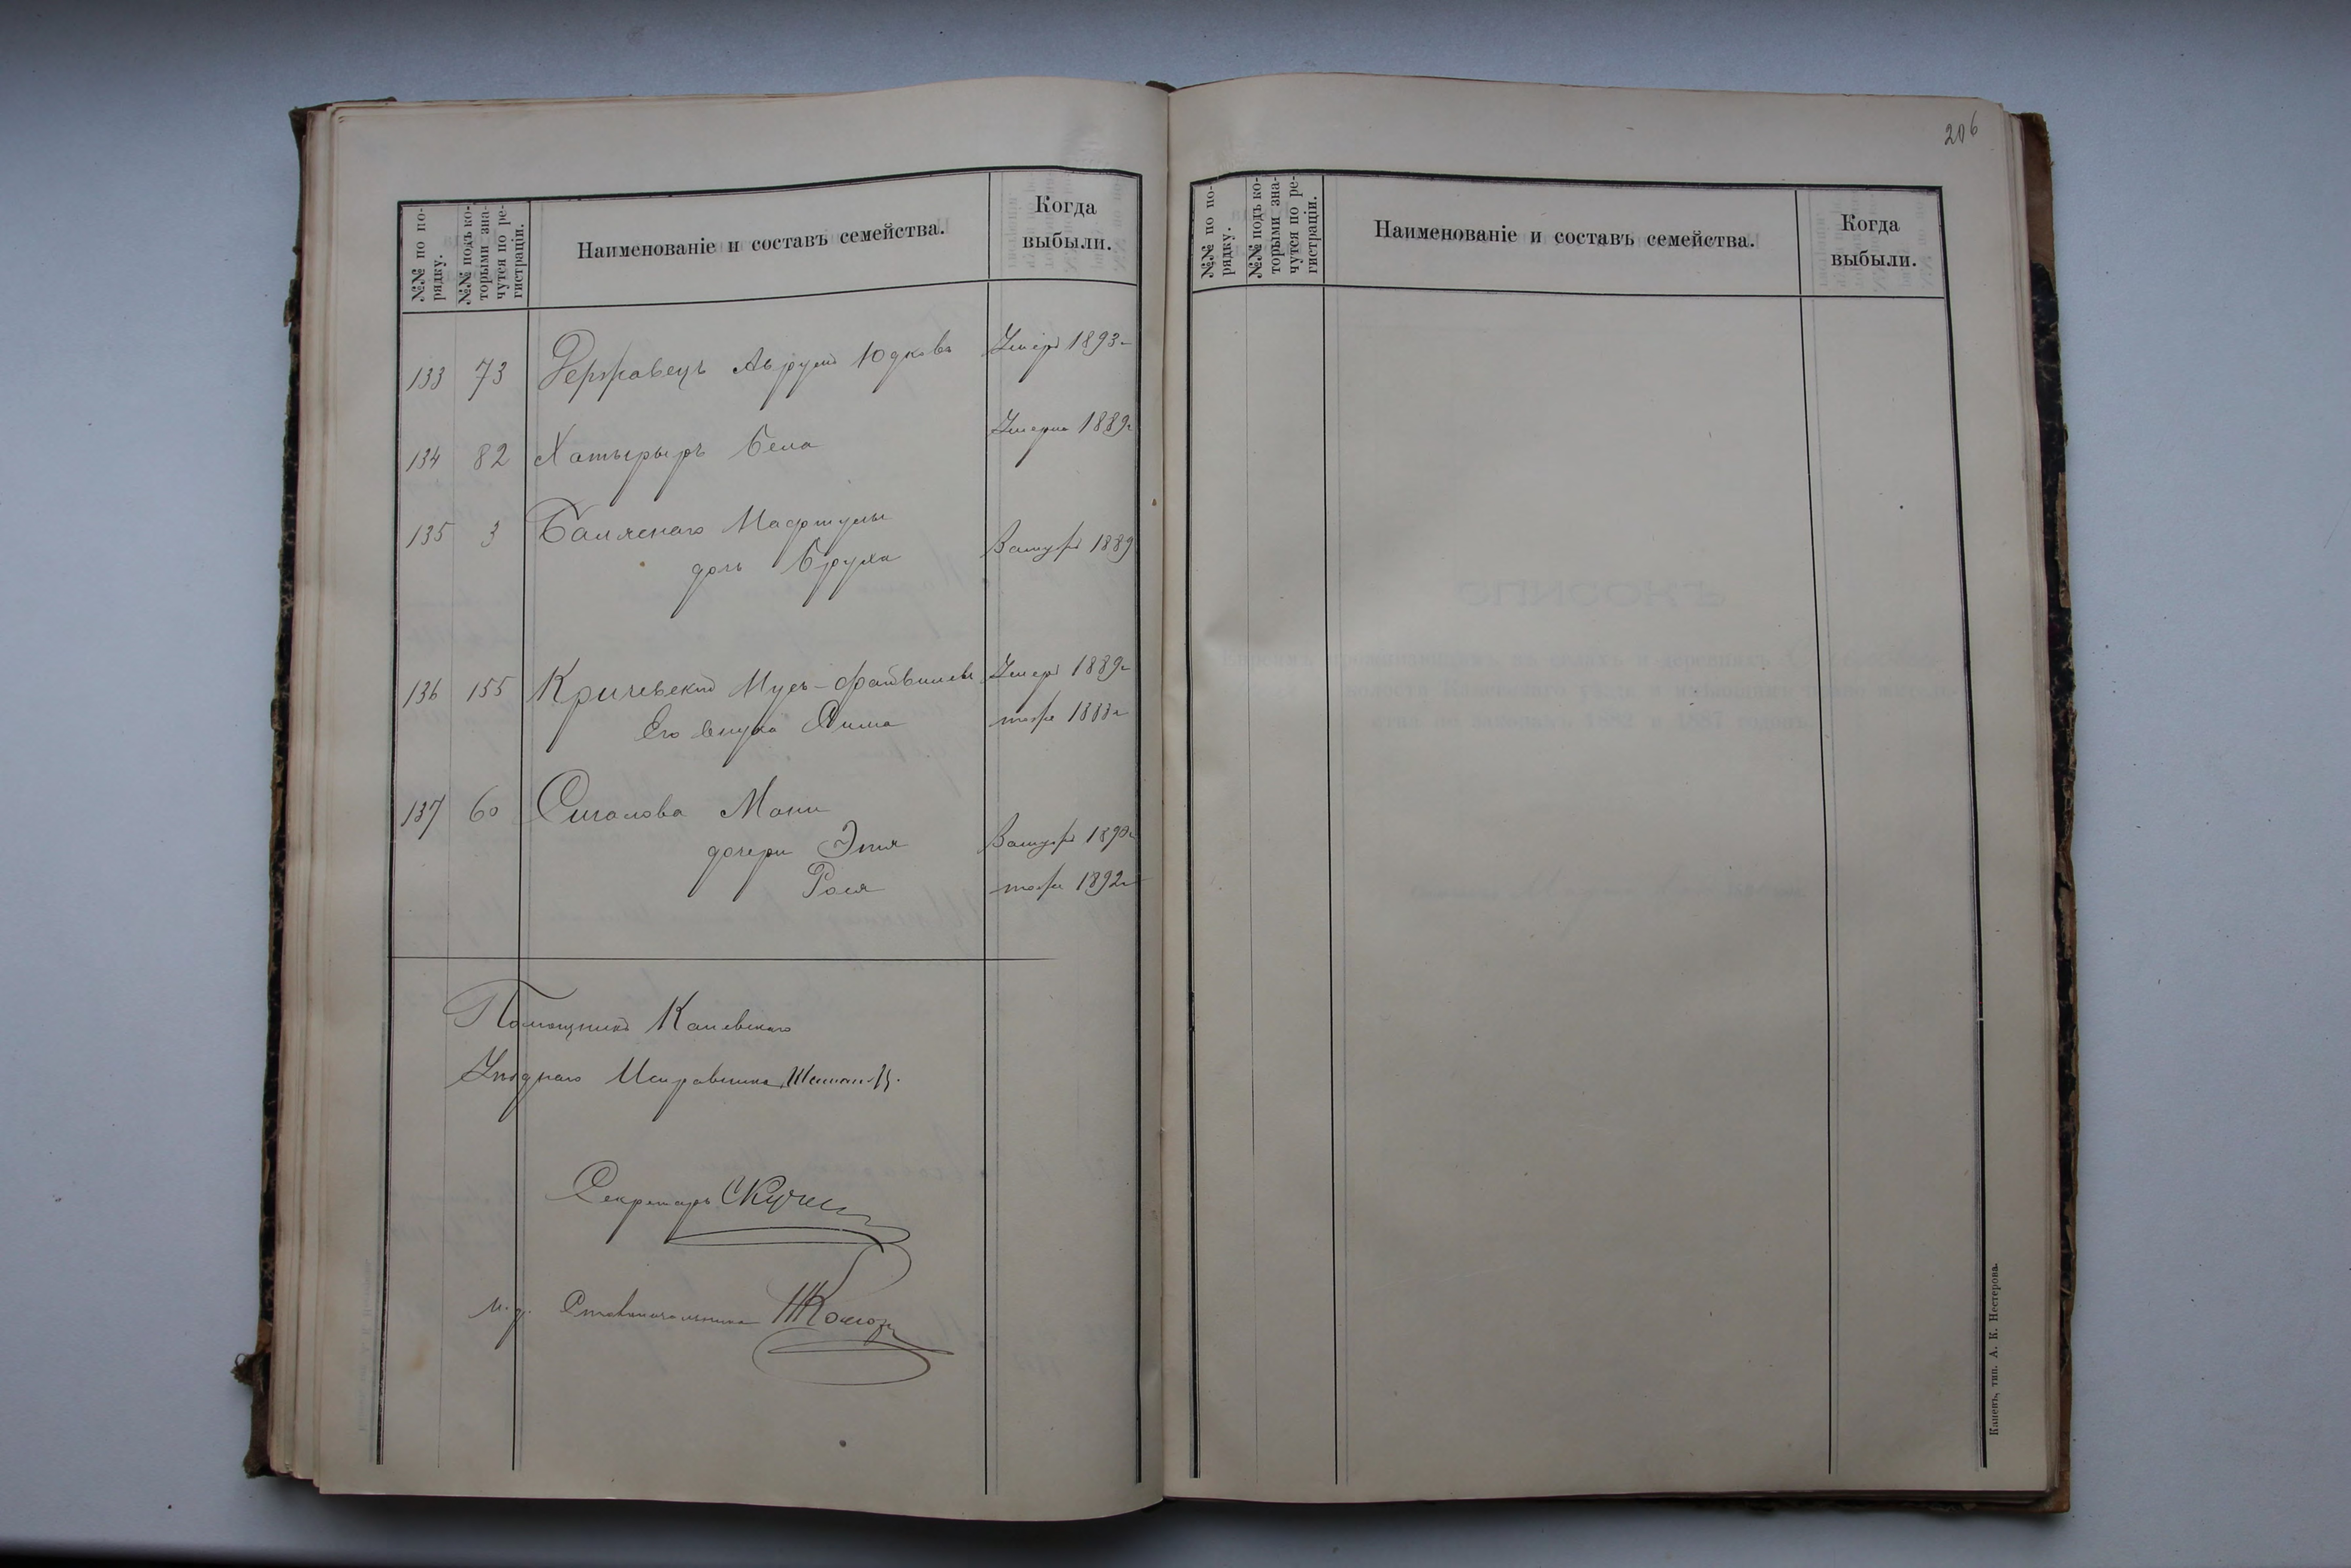 206
№№ по по-
рядку.
№№ подъ ко-
торыми зна-
чутся по ре-
гистраціи.
Наименованіе и составъ семейства.
Когда
выбыли.
133 73 Державецъ Аврумъ Юдковъ Умеръ 1893 г
134 82 Хатырыръ Бела Умерла 1889 г
135 3 Балясного
дочь Бруха Замужъ 1889
136 155 Кричевскій Мусь-Файвишевъ Умеръ 1889 г
Его внука Сима тоже 1888 г
137 60 Сигалова Мани
дочери Этя Замужъ 1890 г
Рося тоже 1892 г
Помощникъ Каневскаго
Уѣзднаго Исправника
Секретарь
И. д. Столоначальника
№№ по по-
рядку.
№№ подъ ко-
торыми зна-
чутся по ре-
гистраціи.
Наименованіе и составъ семейства.
Когда
выбыли.
Каневъ, тип. А. К. Нестерова.